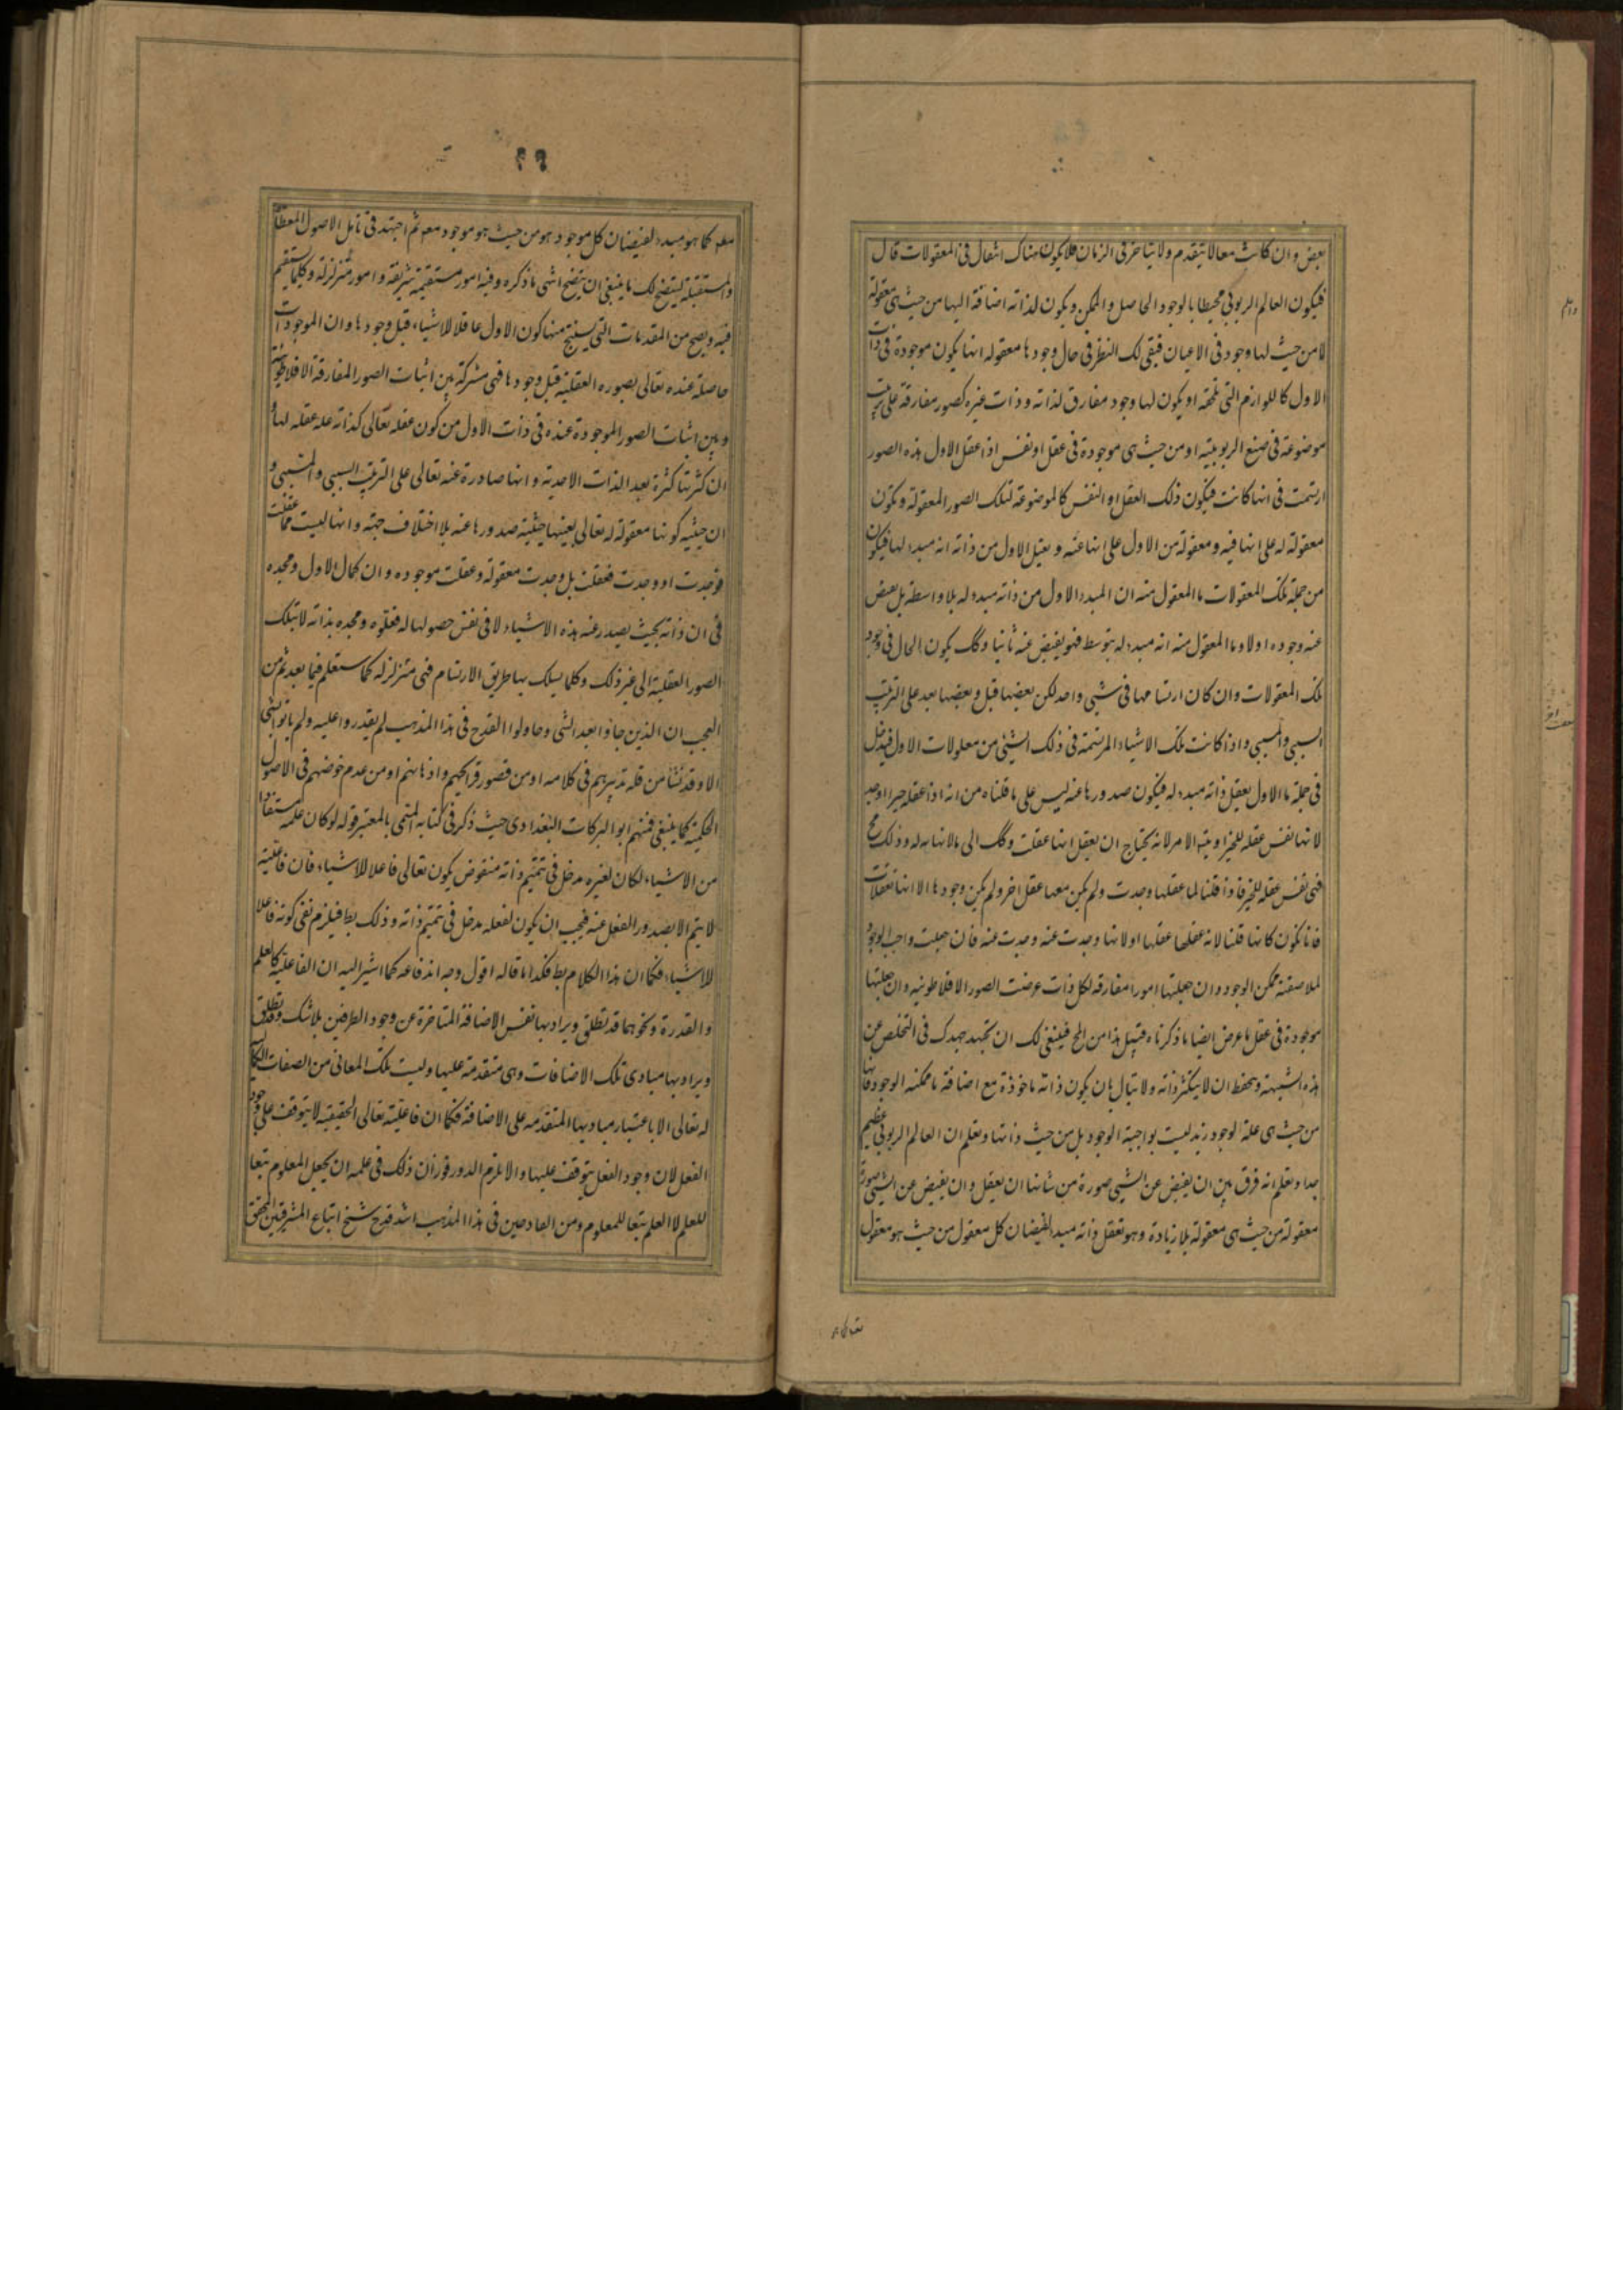 بعض وان كانت معا لا يتقدم ولا يتاخر فى الزمان فلا يكون هناك انتقال فى المعقولات قال
فيكون العالم الربوبى محيطا بالوجود الحاصل والممكن ويكون لذاته اضافة اليها من حيث هى معقولة
لا من حيث لها وجود فى الاعيان فبقى لك النظر فى حال وجودها معقولة انها يكون موجودة فى ذات
الاول كاللوازم التى تلحقه او يكون لها وجود مفارق لذاته وذات غيره كصور مفارقة على ترتيب
موضوعة فى صقع الربوبية او من حيث هى موجودة فى عقل او نفس اذا عقل الاول هذه الصور
ارتسمت فى ايها كانت فيكون ذلك العقل او النفس كالموضوعة لتلك الصور المعقولة وتكون
معقولة له على انها فيه ومعقولة من الاول على انها عنه ويعقل الاول من ذاته انه مبدء لها فيكون
من جملة تلك المعقولات ما المعقول منه ان المبدء الاول من ذاته مبدء له بلا واسطة بل يفيض
عنه وجوده اولا وما المعقول منه انه مبدء له بتوسط فهو يفيض عنه ثانيا وكك يكون الحال فى وجود
تلك المعقولات وان كان ارتسامها فى شيى واحد لكن بعضها قبل وبعضها بعد على الترتيب
السببى والمسببى واذا كانت تلك الاشياء المرتسمة فى ذلك الشيى من معلولات الاول فيدخل
فى جملة ما الاول يعقل ذاته مبدء له فيكون صدورها عنه ليس على ما قلناه من انه اذا عقله خيرا وجد
لانها نفس عقله للخير او يتـ الامر لانه يحتاج ان يعقل انها عقلت وكك الى مالا نهاية له وذلك مح
فهى نفس عقله للخير فاذا قلنا لما عقلها وجدت ولم يكن معها عقل اخر ولم يكن وجودها الا انها تعقلات
فانا نكون كانا قلنا لانه عقلها عقلها او لانها وجدت عنه وجدت عنه فان جعلت واجب الوجود
لملاصقته ممكن الوجود وان جعلتها امورا مفارقة لكل ذات عرضت الصور الافلاطونية وان جعلتها
موجودة فى عقل ما عرض ايضا ما ذكرناه قبيل هذا من المح فينبغى لك ان تجتهد جهدك فى التخلص عن
هذه الشبهة وتحفظ ان لا يتكثر ذاته ولا تبال بان يكون ذاته ماخوذة مع اضافة ما ممكنة الوجود فانها
من حيث هى علة لوجود زيد ليست بواجبة الوجود بل من حيث ذاتها وتعلم ان العالم الربوبى عظيم
جدا وتعلم انه فرق بين ان يفيض عن الشيى صورة من شانها ان يعقل وان يفيض عن الشيى صورة
معقولة من حيث هى معقولة بلا زيادة وهو تعقل ذاته مبدء لفيضان كل معقول من حيث هو معقول
٢٩
معـ كما هو مبدء لفيضان كل موجود هو من حيث هو موجود معـ ثم اجتهد فى تامل الاصول المعطاة
والمستقبلة ليتضح لك ما ينبغى ان يتضح انتهى ما ذكره وفيه امور مستقيمة شريفة وامور متزلزلة وكلما يستقيم
فيه ويصح من المقدمات التى يستنتج منها كون الاول عاقلا للاشياء قبل وجودها وان الموجودات
حاصلة عنده تعالى بصوره العقلية قبل وجودها فهى مشتركة بين اثبات الصور المفارقة الافلاطونية
وبين اثبات الصور الموجودة عنده فى ذات الاول من كون عقله تعالى لذاته علة عقله لها و
ان كثرتها كثرة بعد الذات الاحدية وانها صادرة عنه تعالى على الترتيب السببى والمسببى و
ان حيثية كونها معقولة له تعالى بعينها حيثية صدورها عنه بلا اختلاف جهة وانها ليست مما عقلت
فوجدت او وجدت فعقلت بل وجدت معقولة وعقلت موجوده وان كمال الاول ومجده
فى ان ذاته بحيث يصدر عنه هذه الاشياء لا فى نفس حصولها له فعلوه ومجده بذاته لا بتلك
الصور العقلية الى غير ذلك وكلما يسلك بها طريق الارتسام فهى متزلزلة كما ستعلم فيما بعد ثم من
العجب ان الذين جاؤا بعد الشى وحاولوا القدح فى هذا المذهب لم يقدروا عليه ولم ياتوا بشى
الا وقد نشأ من قلة تدبرهم فى كلامه او من قصور قرايحهم واذهانهم او من عدم خوضهم فى الاصول
الحكمية كما ينبغى فمنهم ابو البركات البغدادى حيث ذكر فى كتابه المسمى بالمعتبر قوله لو كان علمه مستفادا
من الاشياء لكان لغيره مدخل فى تتميم ذاته منقوض بكون تعالى فاعلا للاشياء فان فاعليته
لا يتم الا بصدور الفعل عنه فيجب ان يكون لفعله مدخل فى تتميم ذاته وذلك بط فيلزم نفى كونه فاعلا
للاشياء فكما ان هذا الكلام بط فكذا ما قاله اقول وجه اندفاعه كما اشير اليه ان الفاعلية كالعلم
والقدرة ونحوهما قد تطلق ويراد بها نفس الاضافة المتاخرة عن وجود الطرفين بلا شك وقد تطلق
ويراد بها مبادى تلك الاضافات وهى متقدمة عليها وليست تلك المعانى من الصفات الكمالية
له تعالى الا باعتبار مباديها المتقدمة على الاضافة فكما ان فاعليته تعالى الحقيقية لا يتوقف على وجود
الفعل لان وجود الفعل يتوقف عليها والا يلزم الدور فوزان ذلك فى علمه ان يجعل المعلوم تبعا
للعلم لا العلم تبعا للمعلوم ومن القادحين فى هذا المذهب اشد قدح شيخ اتباع المشرقيين المحقق